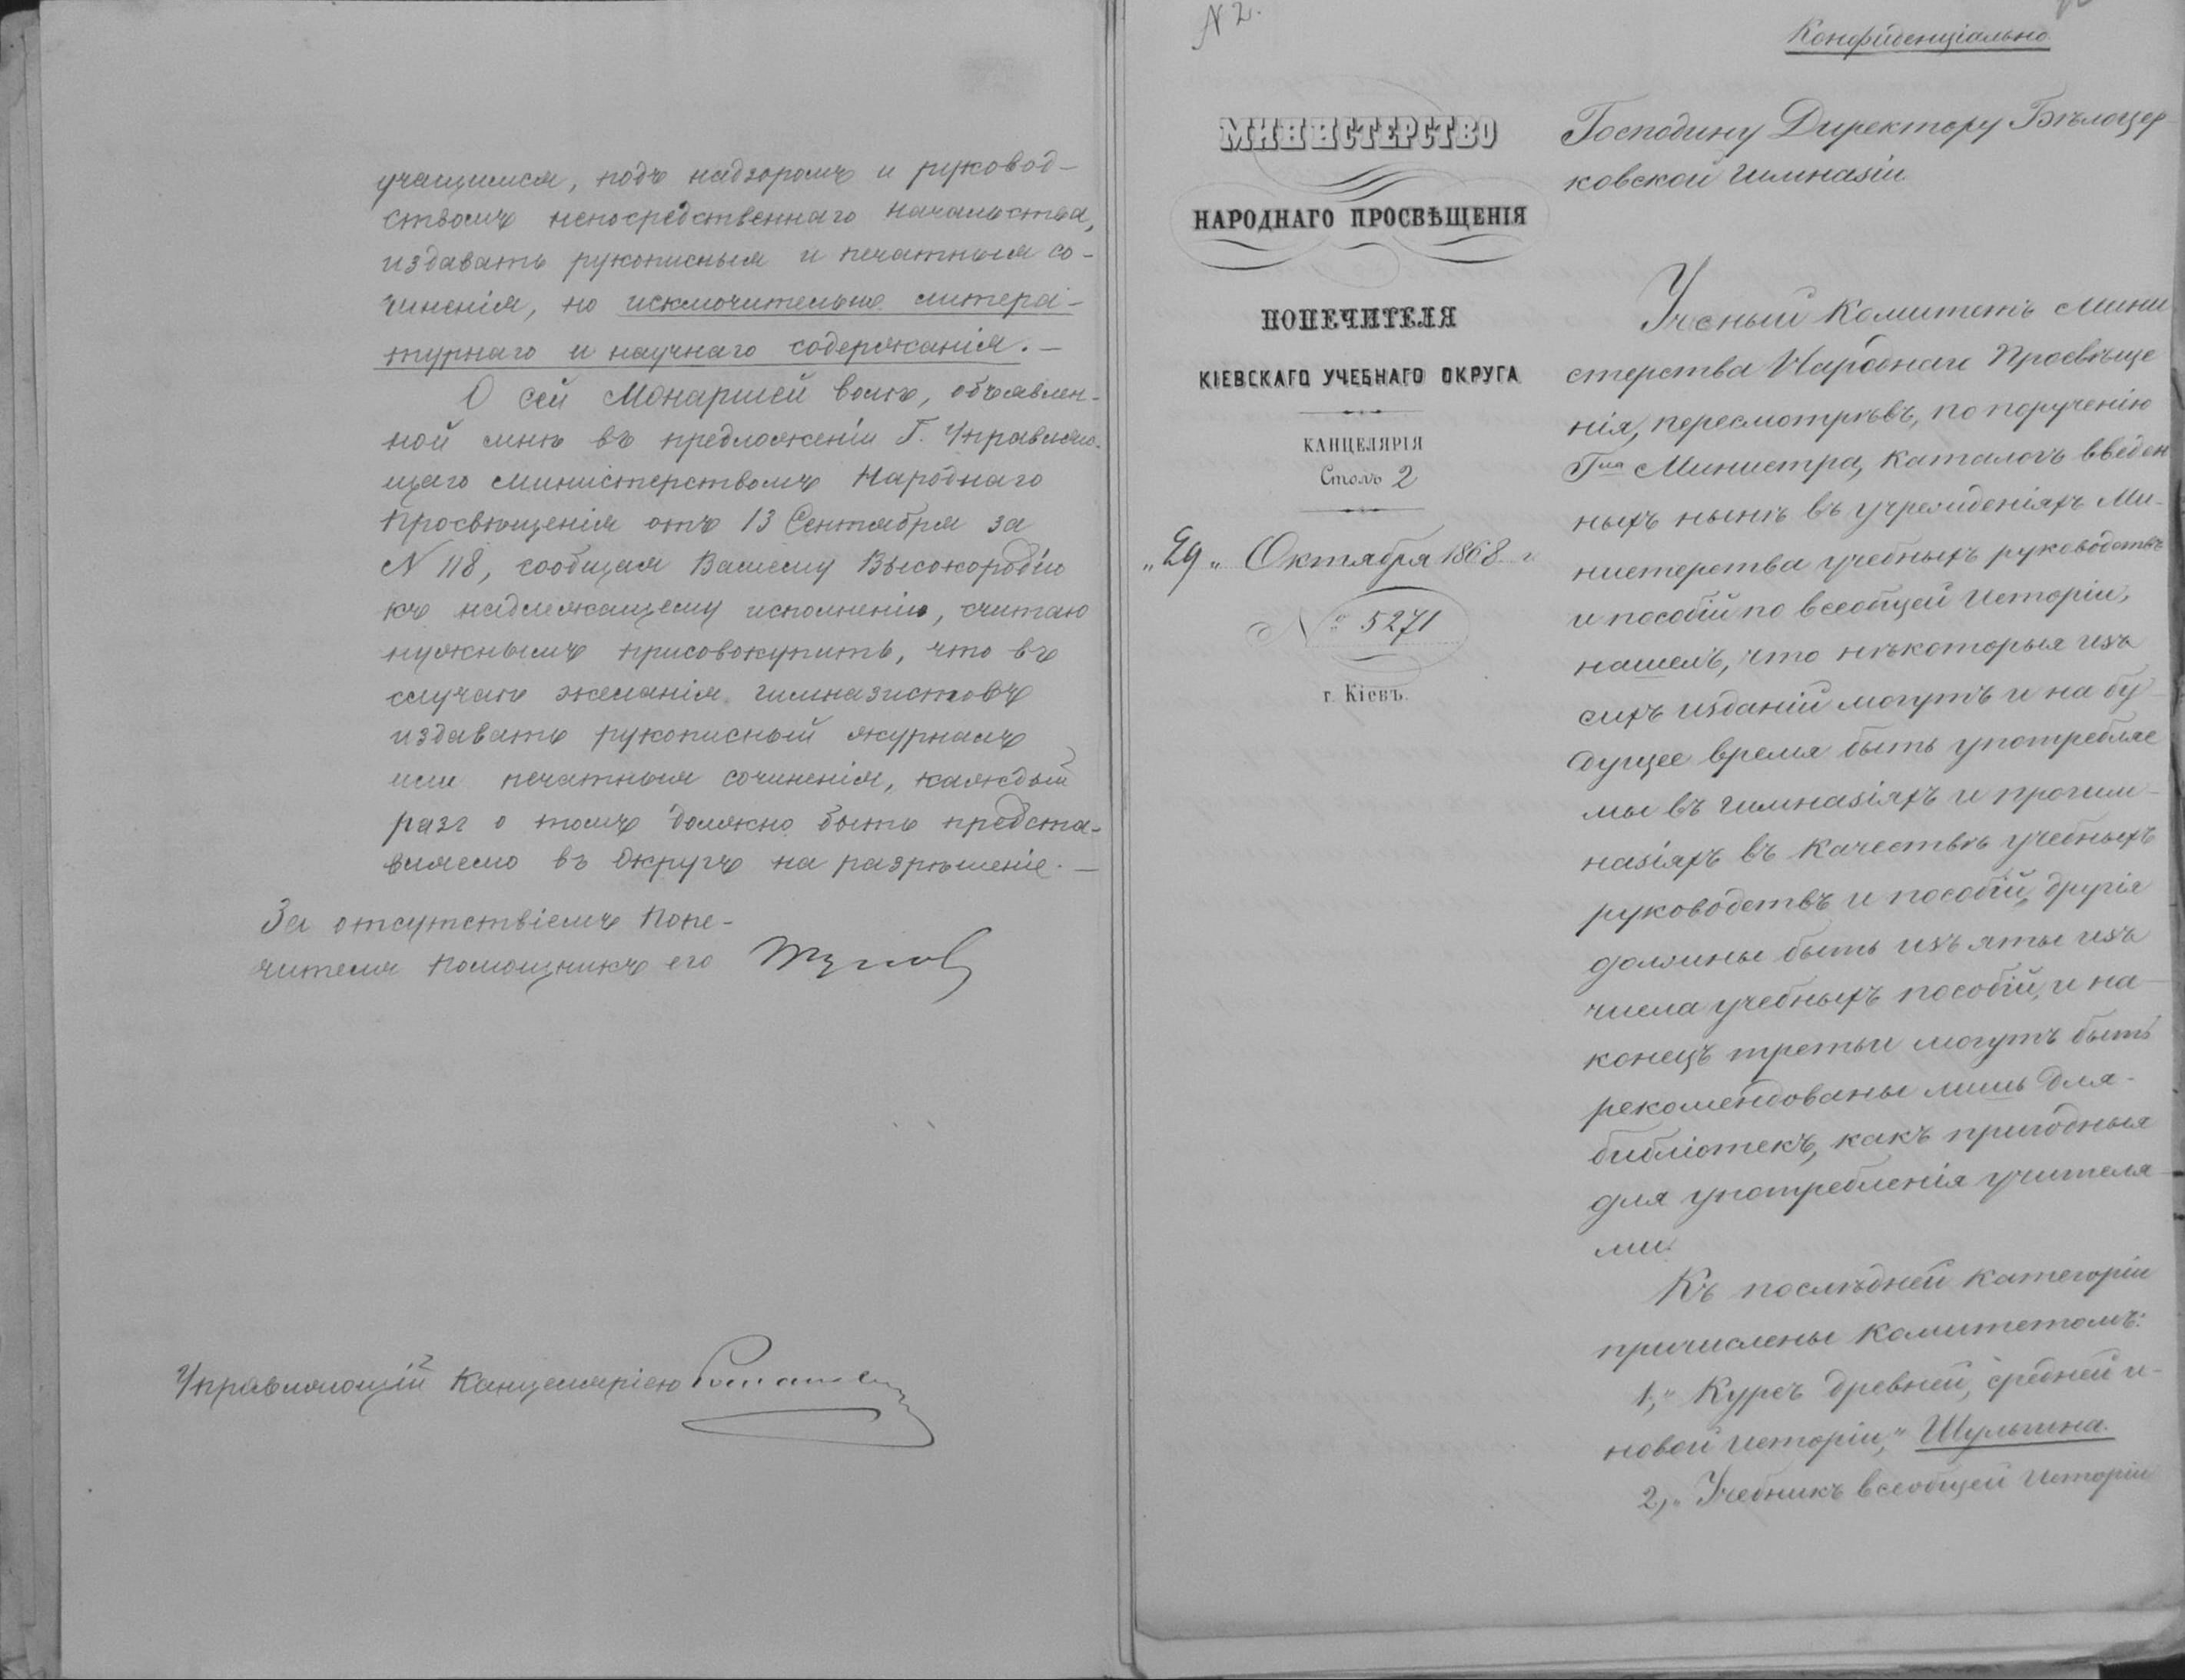 учащимся, подъ надзоромъ и руковод-
ствомъ непосредственнаго начальства,
издавать рукописныя и печатныя со-
чиненія, но исключительно литера-
турнаго и научнаго содержанія. —
О сей Монаршей волѣ, объявлен-
ной мнѣ въ предложеніи Г. Управляю-
щаго Министерствомъ Народнаго
Просвѣщенія отъ 13 Сентября за
N 118, сообщая Вашему Высокородію
къ надлежащему исполненію, считаю
нужнымъ присовокупить, что въ
случаѣ желанія гимназистовъ
издавать рукописный журналъ
или печатныя сочиненія, каждый
разъ о томъ должно быть предста-
вляемо въ Округъ на разрѣшеніе. —
За отсутствіемъ Попе-
чителя Помощникъ его
Управляющій Канцеляріею
N 2.
Конфиденціально.
МИНИСТЕРСТВО
НАРОДНАГО ПРОСВѢЩЕНІЯ
ПОПЕЧИТЕЛЯ
КІЕВСКАГО УЧЕБНАГО ОКРУГА
КАНЦЕЛЯРІЯ
Столъ 2
„29„ Октября 1868 г
№ 5271
г. Кіевъ.
Господину Директору Бѣлоцер-
ковской гимназіи
Ученый Комитетъ Мини
стерства Народнаго Просвѣще
нія, пересмотрѣвъ, по порученію
Гна Министра, каталогъ введен
ныхъ нынѣ въ учрежденіяхъ Ми-
нистерства учебныхъ руководствъ
и пособій по всеобщей исторіи,
нашелъ, что нѣкоторыя изъ
сихъ изданій могутъ и на бу-
дущее время быть употребляе
мы въ гимназіяхъ и прогим-
назіяхъ въ качествѣ учебныхъ
руководствъ и пособій, другія
должны быть изъяты изъ
числа учебныхъ пособій, и на-
конецъ третьи могутъ быть
рекомендованы лишь для-
библіотекъ, какъ пригодныя
для употребленія учителя-
ми.
Къ послѣдней категоріи
причислены комитетомъ:
1, „Курсъ древней, средней и-
новой исторіи,“ Шульгина.
2, „Учебникъ всеобщей исторіи